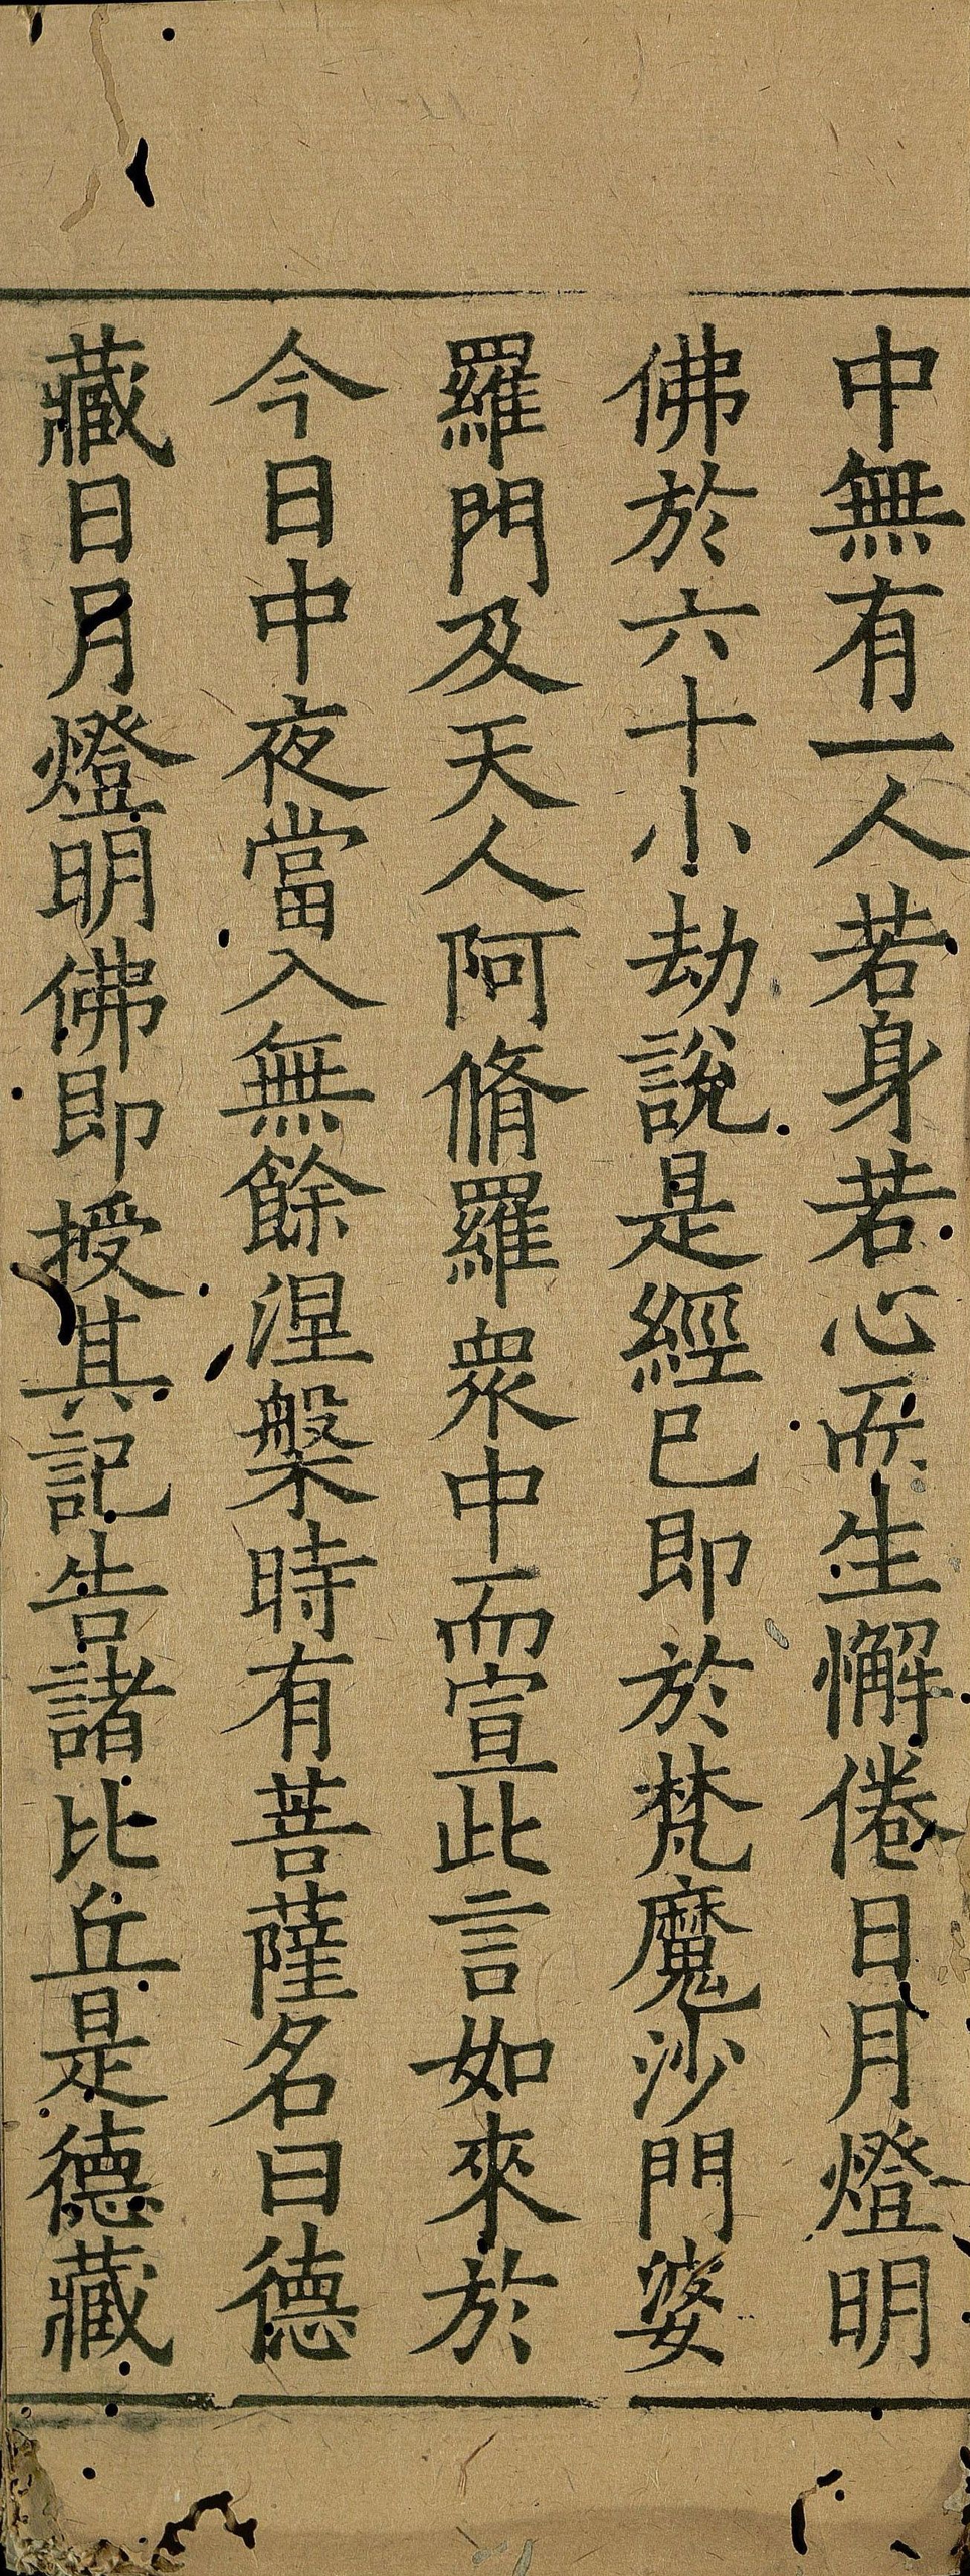 中無有一人若身若心而生懈倦日月燈明
佛於六十小劫說是經已即於梵魔沙門婆
羅門及天人阿脩羅衆中而宣此言如來於
今日中夜當入無餘涅槃時有菩薩名曰德
藏日月燈明佛即授其記告諸比丘是德藏